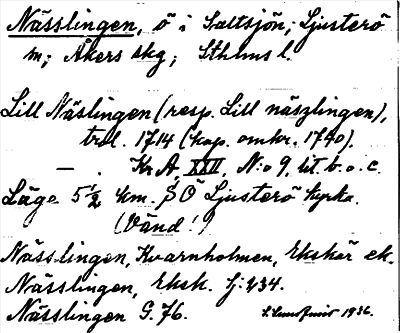 Nässlingen, ö i Saltsjön, Ljusterö
m; Åkers skg; Sthlms l.
Lill Näslingen (resp. Lill näszlingen),
trol. 1714 (kop. omkr. 1740),
— KrA, XXII, N:o 9, lit. b. o. c.
Läge 5 1/2 km. S Ö Ljusterö kyrka.
(Vänd!)
Nässlingen, Kvarnholmen, Ekskär ek.
Nässlingen, Eksk. Jj: 234.
Nässlingen G. 76.
1936.